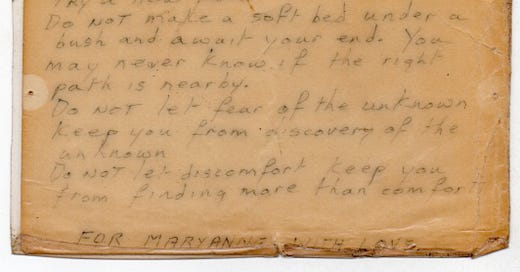 Try a new
Do not make a soft bed under a
bush and await your end. You
may never know if the right
path is nearby.
Do not let fear of the unknown
keep you from discovery of the
unknown
Do not let discomfort keep you
from finding more than comfort
FOR MARYANNE WITH LOVE